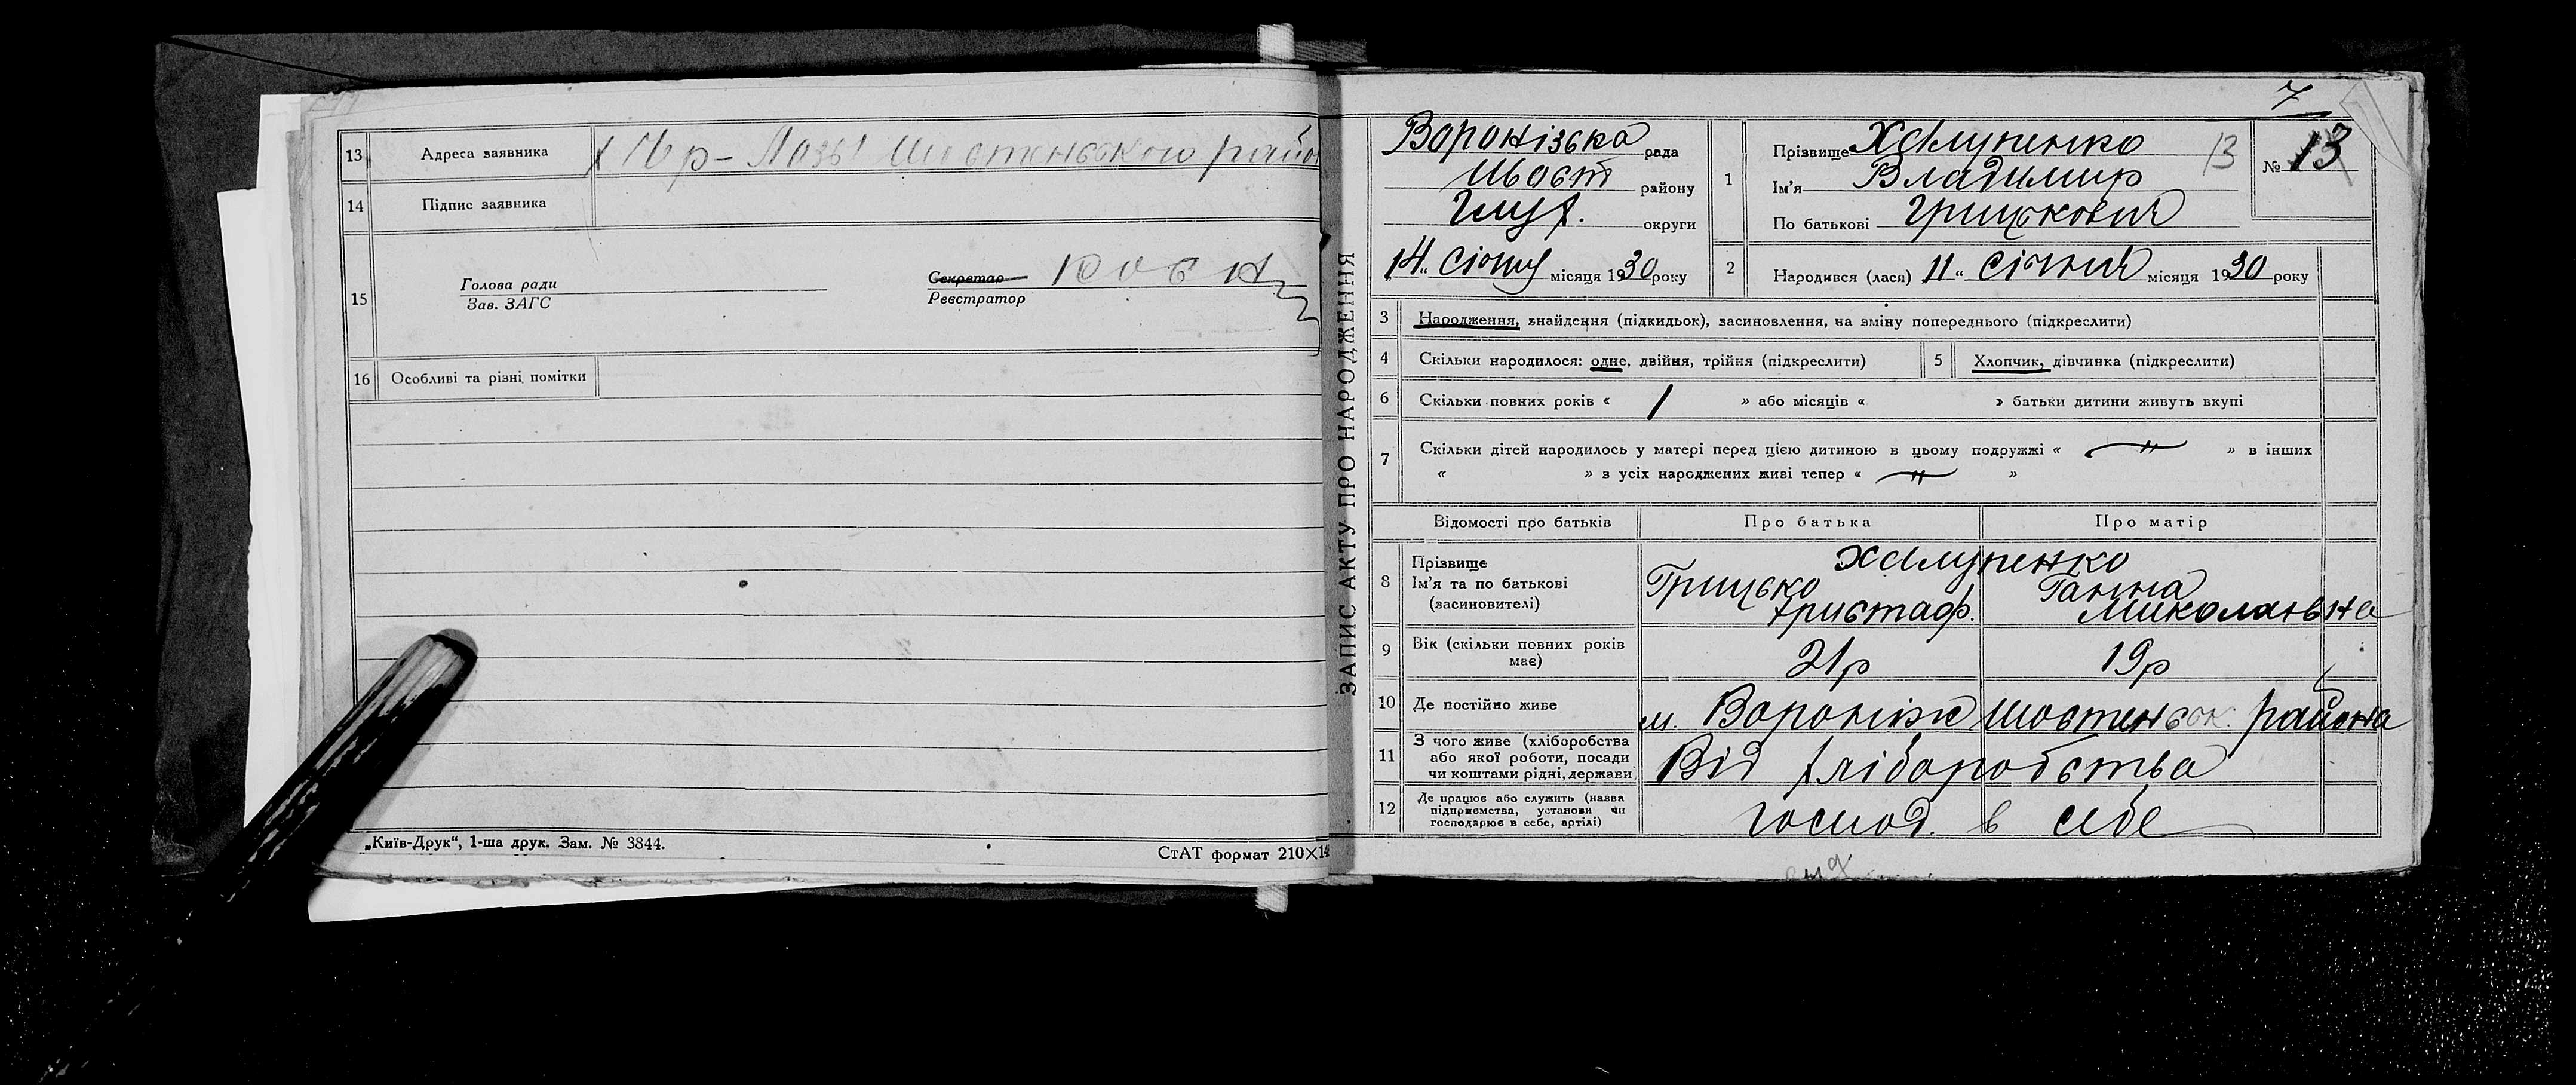 13 Адреса заявника х Ібр-Лозы Шостенського район
14 Підпис заявника
15 Голова ради
Зав. ЗАГС
Секретар
Реєстратор
16 Особливі та різні помітки
„Київ-Друк“, 1-ша друк. Зам. № 3844.
СтАТ формат 210×14
ЗАПИС АКТУ ПРО НАРОДЖЕННЯ
7
Воронізька рада
Шост району
Глух. округи
14 „ січня місяця 1930 року
1 Прізвище Халупенко 13
Ім'я Владимир
По батькові Грицькович
№ 13
2 Народився (лася) 11 „ січня місяця 1930 року
3 Народження, знайдення (підкидьок), засиновлення, на зміну попереднього (підкреслити)
4 Скільки народилося: одне, двійня, трійня (підкреслити) 5 Хлопчик, дівчинка (підкреслити)
6 Скільки повних років « 1 » або місяців « » батьки дитини живуть вкупі
7 Скільки дітей народилось у матері перед цією дитиною в цьому подружжі « — " — » в інших
« » з усіх народжених живі тепер « — " — »
Відомості про батьків Про батька Про матір
8 Прізвище
Ім'я та по батькові
(засиновителі)
Халупенко
Грицько Ганна
христаф. Миколаивна
9 Вік (скільки повних років
має)
21р 19р
10 Де постійно живе м. Вороніж Шостенськ. района
11 З чого живе (хліборобства
або якої роботи, посади
чи коштами рідні, держави
Від хліборобства
12 Де працює або служить (назва
підприємства, установи чи
господарює в себе, артілі)
господ. в себе